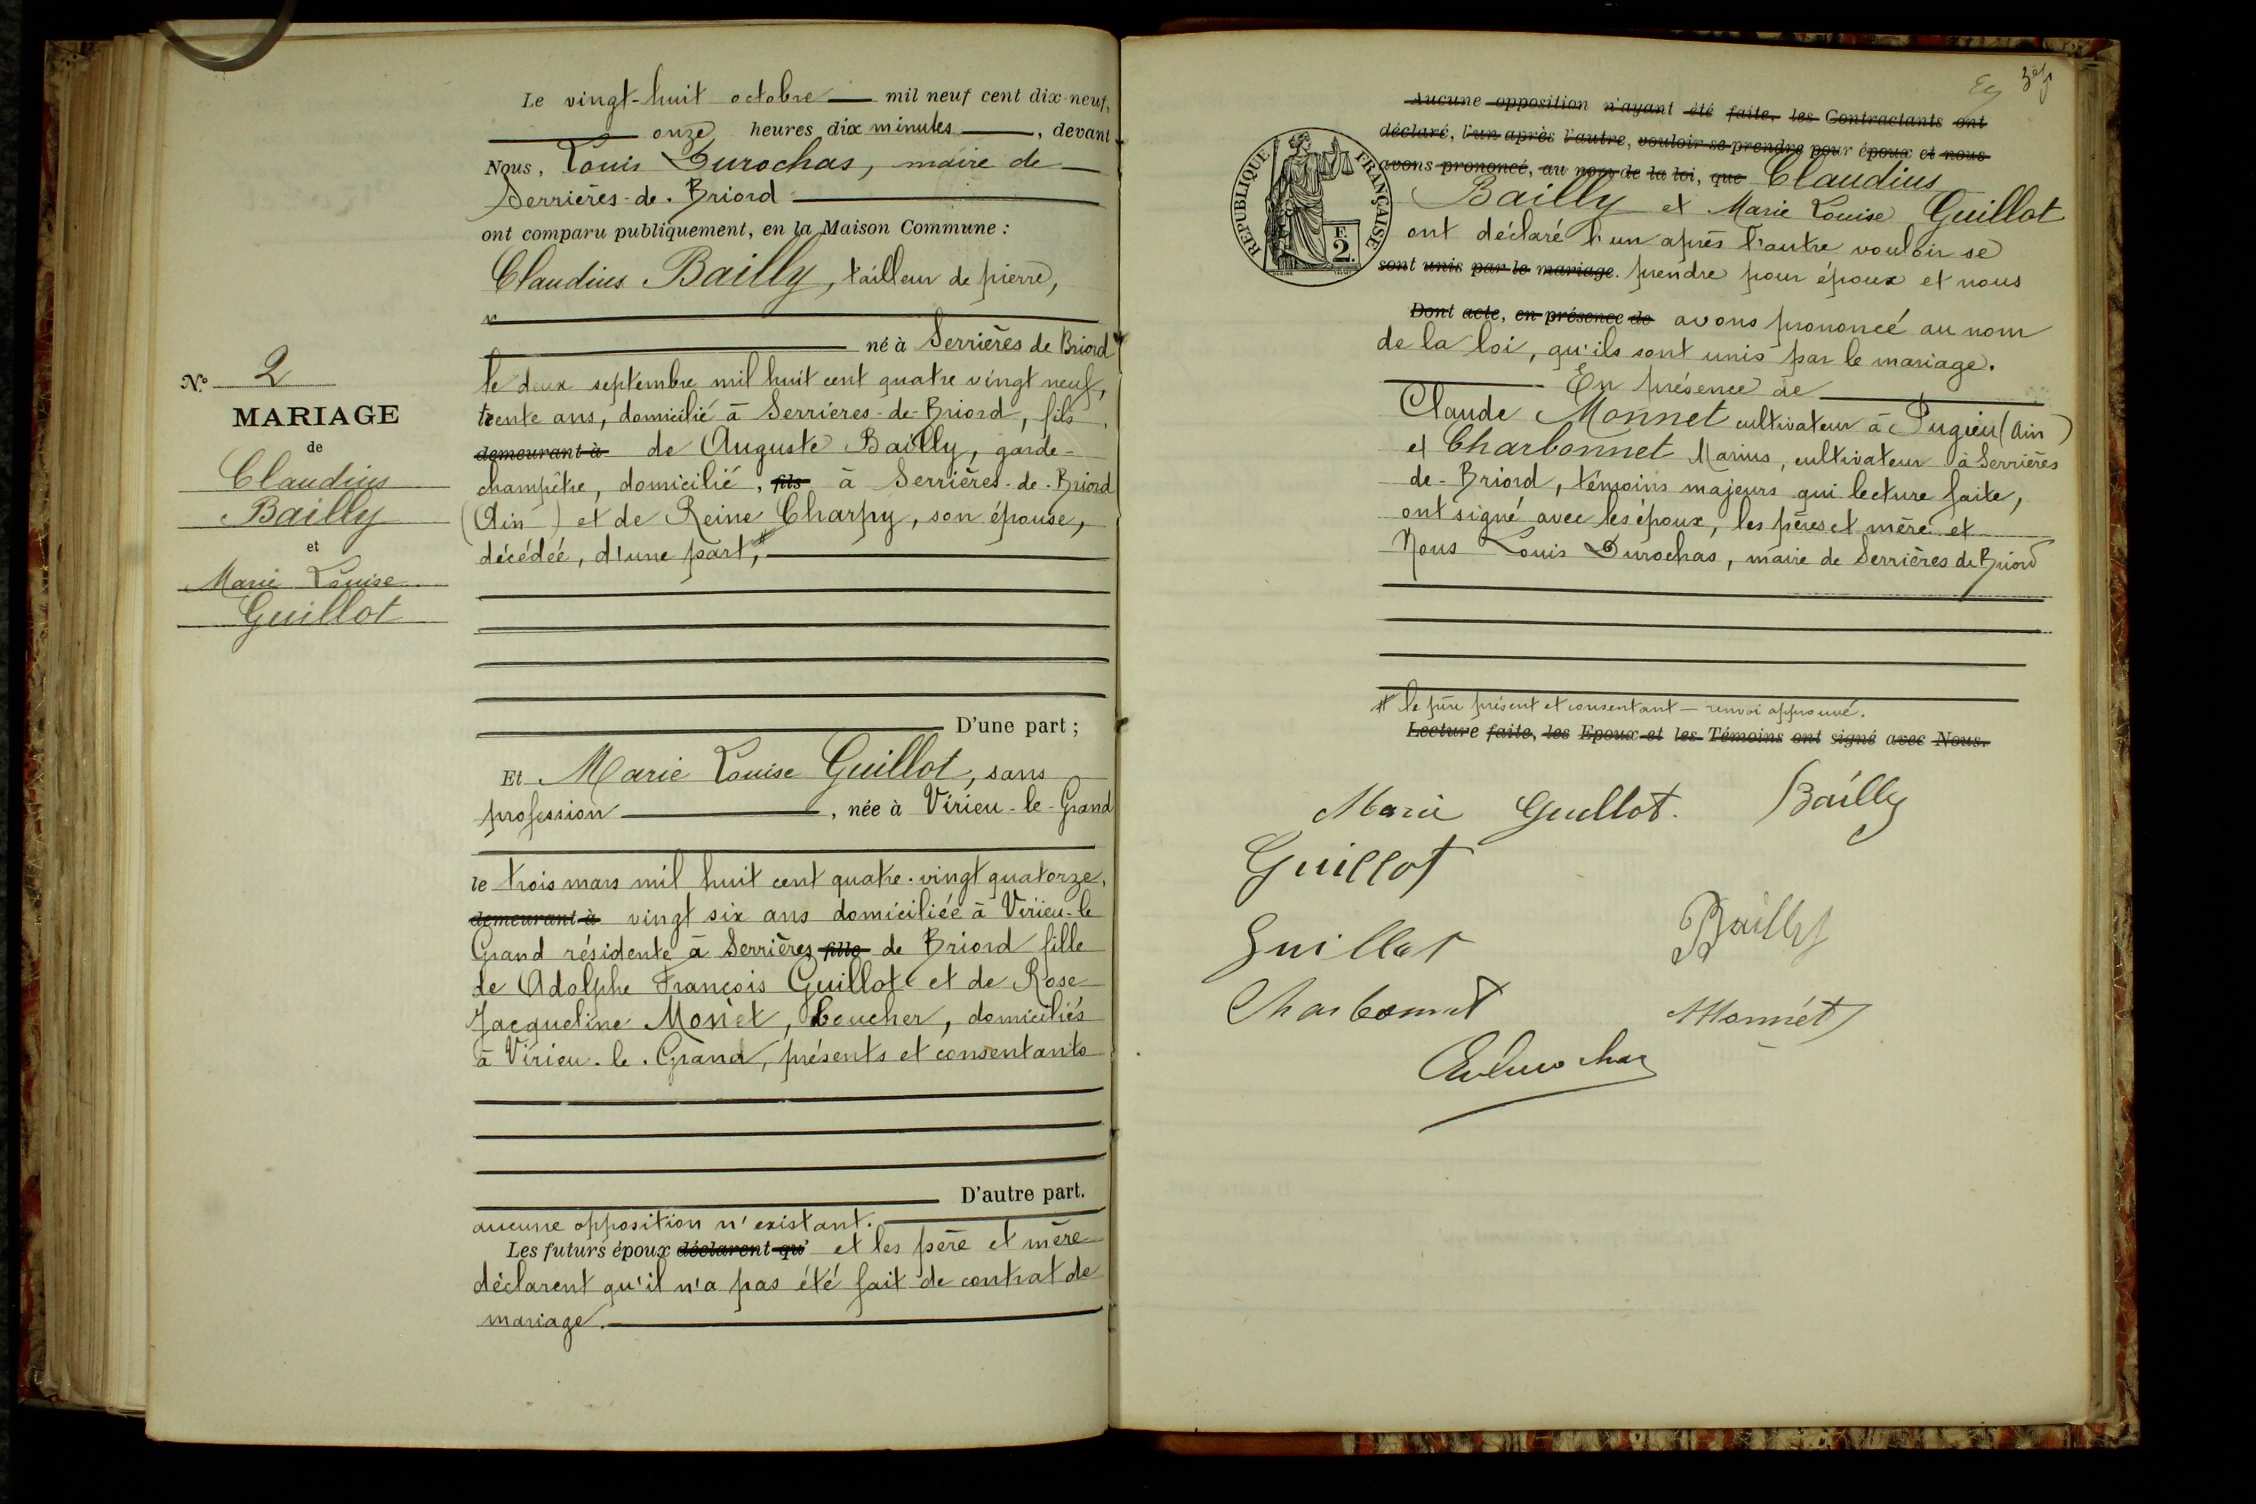 Le vingt-huit octobre mil neuf cent dix-neuf,
onze heures dix minutes, devant
Nous, Louis Durochas, maire de
Serrières-de-Briord
ont comparu publiquement, en la Maison Commune :
Claudius Bailly, tailleur de pierre,
né à Serrières de Briord
le deux septembre mil huit cent quatre vingt neuf,
trente ans, domicilié à Serrières-de-Briord, fils
demeurant à de Auguste Bailly, garde-
champêtre, domicilié, fils à Serrières-de-Briord
(Ain) et de Reine Charpy, son épouse,
décédée, d'une part,#
D'une part ;
Et Marie Louise Guillot, sans
profession, née à Virieu-le-Grand
le trois mars mil huit cent quatre-vingt quatorze,
demeurant à vingt six ans domiciliée à Virieu-le
Grand résidente à Serrières fille de Briord fille
de Adolphe François Guillot et de Rose
Jacqueline Monet, boucher, domiciliés
à Virieu-le-Grand, présents et consentants
D'autre part.
aucune opposition n'existant.
Les futurs époux déclarent qu' et les père et mère
déclarent qu'il n'a pas été fait de contrat de
mariage.
N° 2
MARIAGE
de
Claudius
Bailly
et
Marie Louise
Guillot
Aucune opposition n'ayant été faite, les Contractants ont
déclaré, l'un après l'autre, vouloir se prendre pour époux et nous
avons prononcé, au nom de la loi, que Claudius
Bailly et Marie Louise Guillot
ont déclaré l'un après l'autre vouloir se
sont unis par le mariage. prendre pour époux et nous
Dont acte, en présence de avons prononcé au nom
de la loi, qu'ils sont unis par le mariage.
En présence de
Claude Monnet cultivateur à Pugieu (Ain)
et Charbonnet Marius, cultivateur à Serrières
de-Briord, témoins majeurs qui lecture faite,
ont signé avec les époux, les pères et mère et
Nous Louis Durochas, maire de Serrières de Briord
# le père présent et consentant - renvoi approuvé.
Lecture faite, les Epoux et les Témoins ont signé avec Nous.
RÉPUBLIQUE FRANÇAISE
F.
2.
Marie Guillot. Bailly
Guillot
Guillot Bailly
Charbonnet Monnet